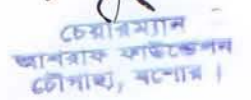 চেয়ারম্যান
জাগরনাক ফাউন্ডেশন
চৌগাছা, যশোর।